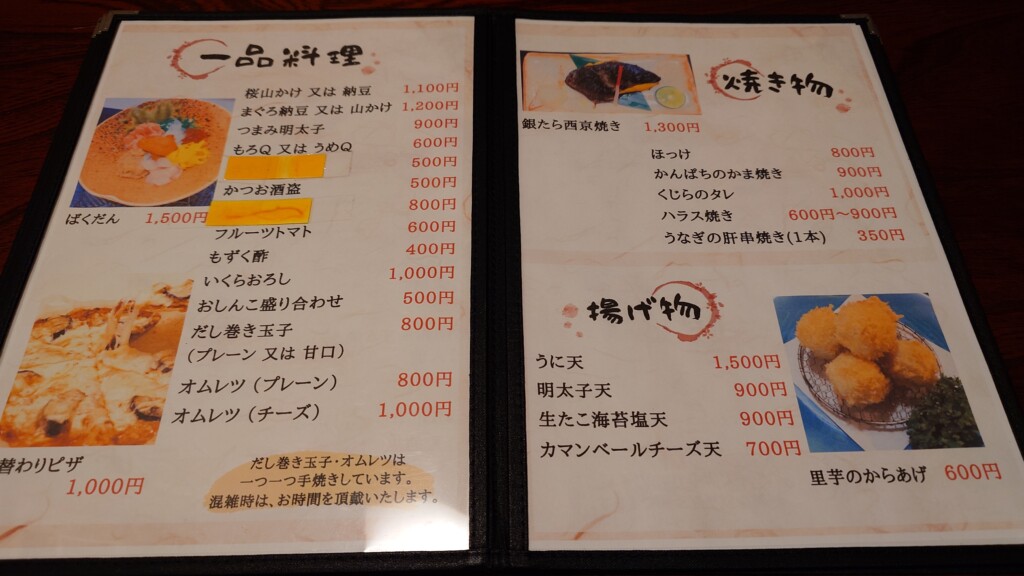 一品料理
桜山かけ 又は 納豆 1,100円
まぐろ納豆 又は 山かけ 1,200円
つまみ明太子 900円
もろQ 又は うめQ 600円
500円
かつお酒盗 500円
800円
フルーツトマト 600円
もずく酢 400円
いくらおろし 1,000円
おしんこ盛り合わせ 500円
だし巻き玉子 800円
(プレーン 又は 甘口)
オムレツ (プレーン) 800円
オムレツ (チーズ) 1,000円
ばくだん 1,500円
替わりピザ
1,000円
だし巻き玉子・オムレツは
一つ一つ手焼きしています。
混雑時は、お時間を頂戴いたします。
焼き物
銀たら西京焼き 1,300円
ほっけ 800円
かんぱちのかま焼き 900円
くじらのタレ 1,000円
ハラス焼き 600円〜900円
うなぎの肝串焼き(1本) 350円
揚げ物
うに天 1,500円
明太子天 900円
生たこ海苔塩天 900円
カマンベールチーズ天 700円
里芋のからあげ 600円